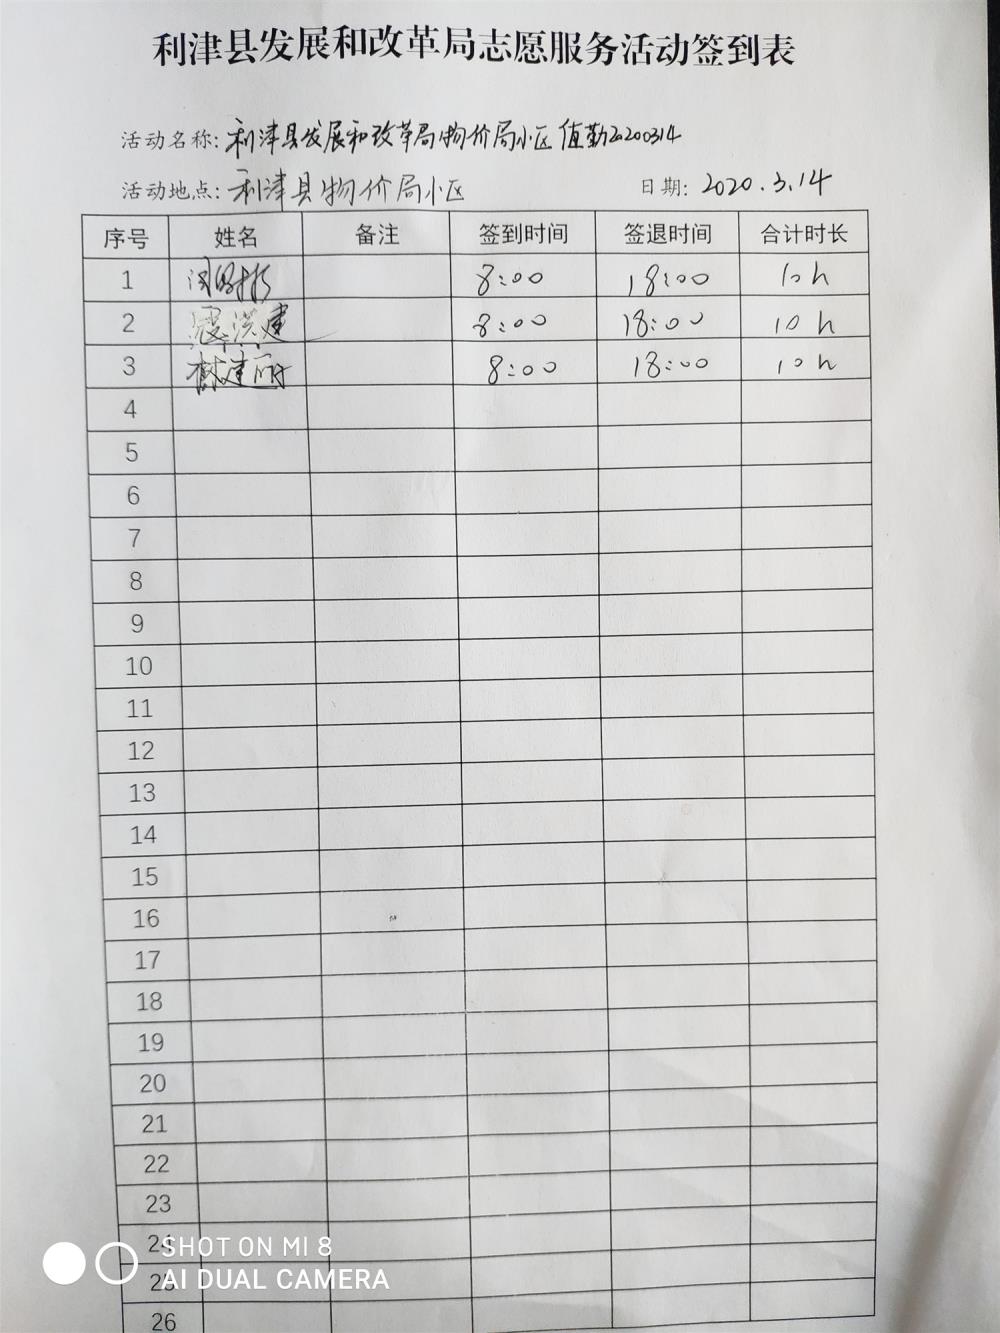 利津县发展和改革局志愿服务活动签到表
活动名称: 利津县发展和改革局物价局小区值勤20200314
活动地点: 利津县物价局小区 日期: 2020.3.14
序号 姓名 备注 签到时间 签退时间 合计时长
1 8:00 18:00 10h
2 寇洪建 8:00 18:00 10h
3 建丽 8:00 18:00 10h
4
5
6
7
8
9
10
11
12
13
14
15
16
17
18
19
20
21
22
23
24
SHOT ON MI 8
25
AI DUAL CAMERA
26